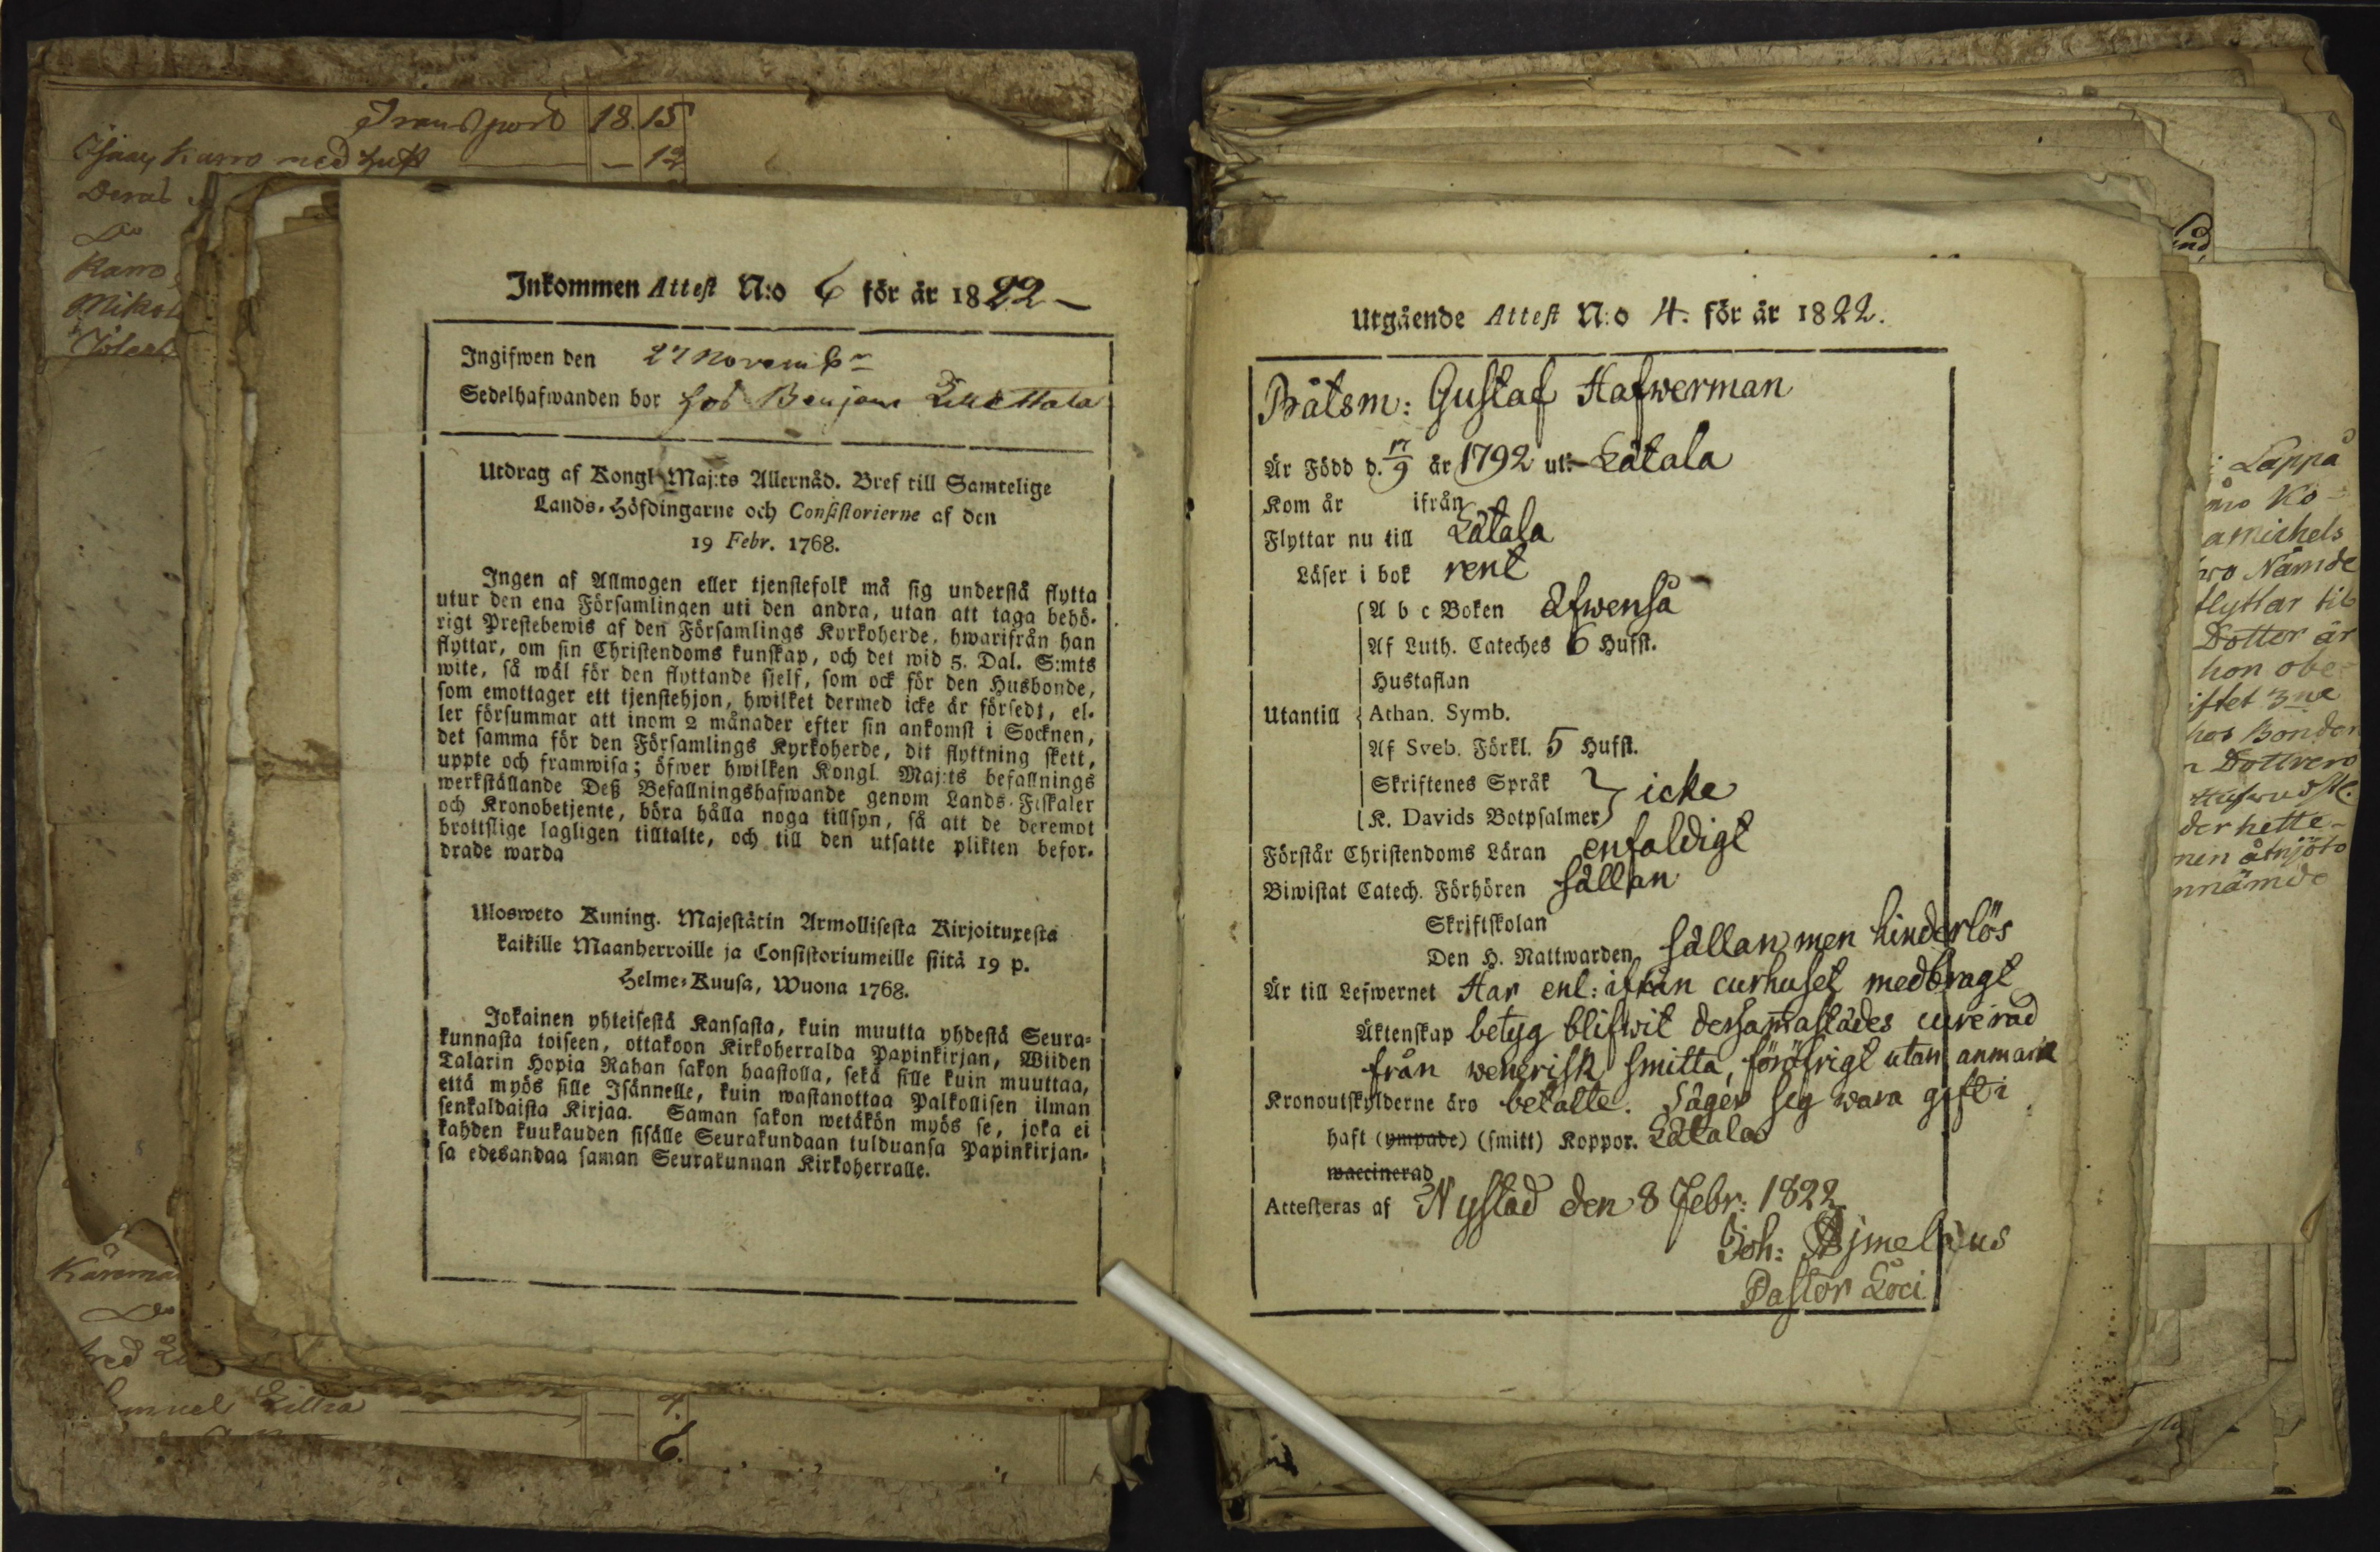 Transport 18. 15
Karro med hust — — 12
Deras
Do
Karro
Inkommen Attest N:o 6 för år 1822 —
Ingifwen den 27 Novemb:r
Sedelhafwanden bor hos Benjam
Utdrag af Kongl. Maj:ts Allernåd. Bref till Samtelige
Lands-Höfdingarne och Consistorierne af den
19 Febr. 1768.
Ingen af Allmogen eller tjenstefolk må sig understå flytta
utur den ena Församlingen uti den andra, utan att taga behö-
rigt Prestebewis af den Församlings Kyrkoherde, hwarifrån han
flyttar, om sin Christendoms kunskap, och det wid 5. Dal. S:mts
wite, så wäl för den flyttande sjelf, som ock för den Husbonde,
som emottager ett tjenstehjon, hwilket dermed icke är försedt, el-
ler försummar att inom 2 månader efter sin ankomst i Socknen,
det samma för den Församlings Kyrkoherde, dit flyttning skett,
uppte och framwisa; öfwer hwilken Kongl. Maj:ts befallnings
werkställande Deß Befallningshafwande genom Lands-Fiskaler
och Kronobetjente, böra hålla noga tillsyn, så att de deremot
brottslige lagligen tilltalte, och till den utsatte plikten befor-
drade warda
Ulosweto Kuning. Majestätin Armollisesta Kirjoituxesta
kaikille Maanherroille ja Consistoriumeille siitä 19 p.
Helme-Kuusa, Wuona 1768.
Jokainen yhteisestä Kansasta, kuin muutta yhdestä Seura-
kunnasta toiseen, ottakoon Kirkoherralda Papinkirjan, Wiiden
Talarin Hopia Rahan sakon haastolla, sekä sille kuin muuttaa,
että myös sille Isännelle, kuin wastanottaa Palkollisen ilman
senkaldaista Kirjaa. Saman sakon wetäkön myös se, joka ei
kahden kuukauden sisälle Seurakundaan tulduansa Papinkirjan-
sa edesandaa saman Seurakunnan Kirkoherralle.
Samuel
4.
6.
Utgående Attest N:o 4. för år 1822.
Båtsm: Gustaf Hafwerman
Är Född d. 17/9 år 1792 ut: Låtala
Kom år ifrån
Flyttar nu till Låtala
Läser i bok rent
A b c Boken äfwenså
Af Luth. Cateches 6 Hufst.
Hustaflan
Utantill Athan. Symb.
Af Sveb. Förkl. 5 Hufst.
Skriftenes Språk
K. Davids Botpsalmer } icke
Förstår Christendoms Läran enfaldigt
Biwistat Catech. Förhören sällan
Skriftskolan
Den H. Nattwarden sällan men hinderlös
Är till Lefwernet Har enl: ifrån curhuset medbragt
Äktenskap betyg blifwit dersammastädes curerad
från wenerisk smitta, föröfrigt utan anmark
Kronoutskylderne äro betalte. Säger sig wara gift i
haft (ympade) (smitt) Koppor. Låtala
waccinerad
Attesteras af Nystad den 8 Febr: 1822
Joh: Ajmelæus
Pastor Loci
Lappå
Ko-
amichels
Nämde
flyttar til
Dotter är
hon obe-
iftet 3ne
hos Bonden
Dottren
der hette-
nen åtnjöto
nnämde